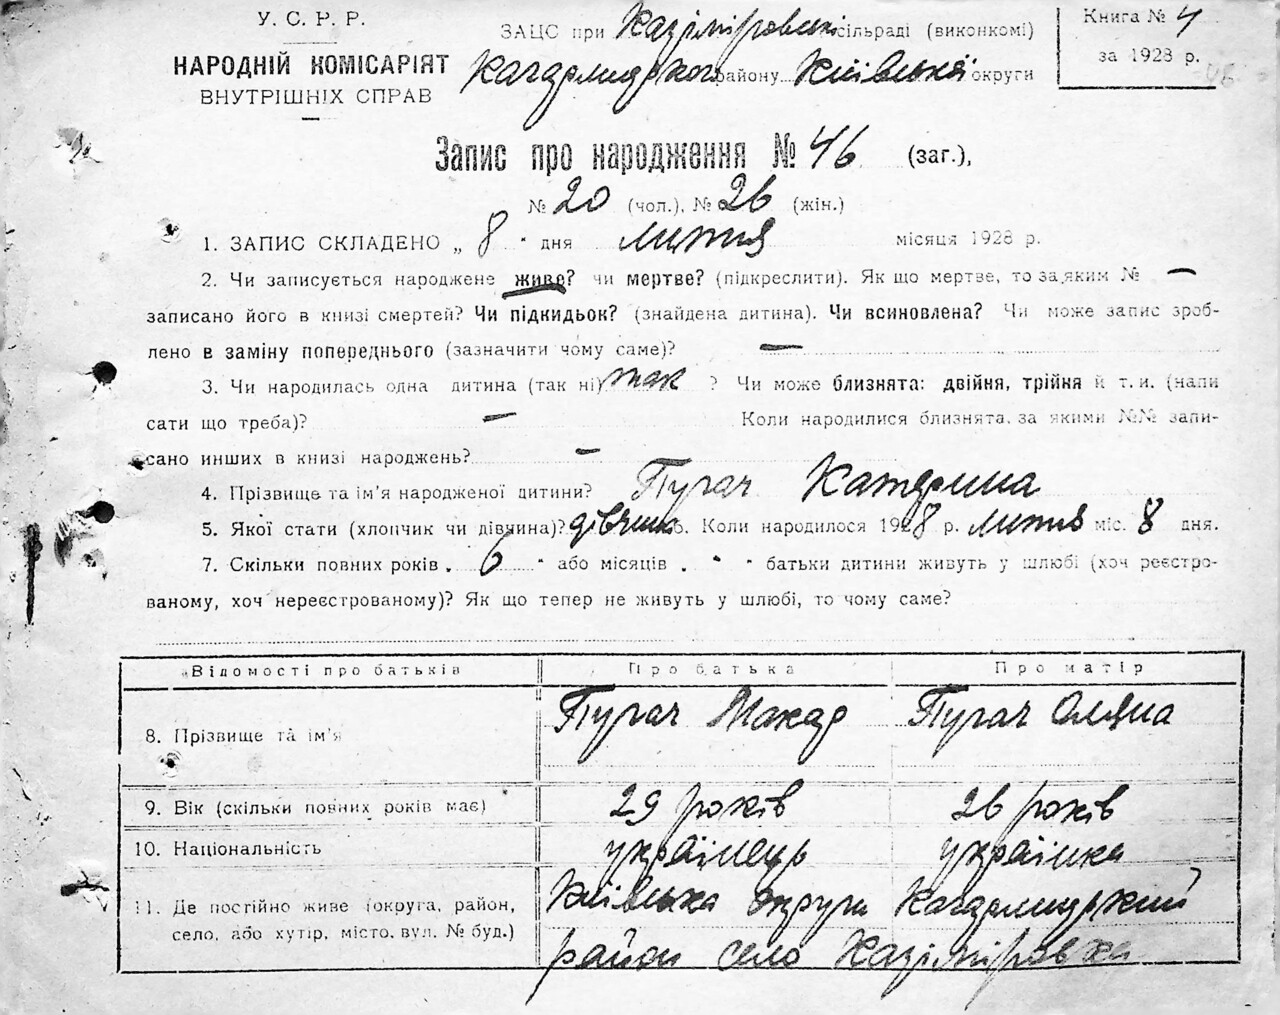 У. С. Р. Р.
НАРОДНІЙ КОМІСАРІЯТ
ВНУТРІШНІХ СПРАВ
ЗАЦС при Казіміровській сільраді (виконкомі)
Кагарлицького району Київської округи
Книга № 4
за 1928 р.
46
Запис про народження № 46 (заг.),
№ 20 (чол.), № 26 (жін.)
1. ЗАПИС СКЛАДЕНО „ 8 " дня липня місяця 1928 р.
2. Чи записується народжене живе? чи мертве? (підкреслити). Як що мертве, то за яким № —
записано його в книзі смертей? Чи підкидьок? (знайдена дитина). Чи всиновлена? Чи може запис зроб-
лено в заміну попереднього (зазначити чому саме)? —
3. Чи народилась одна дитина (так ні) так ? Чи може близнята: двійня, трійня й т. и. (напи
сати що треба)? — Коли народилися близнята, за якими №№ запи-
сано инших в книзі народжень? —
4. Прізвище та ім'я народженої дитини? Пугач Катерина
5. Якої стати (хлопчик чи дівчина)? дівчина 6. Коли народилося 1928 р. липня міс. 8 дня.
7. Скільки повних років „ 6 " або місяців „ " батьки дитини живуть у шлюбі (хоч реєстро-
ваному, хоч нереєстрованому)? Як що тепер не живуть у шлюбі, то чому саме?
Відомості про батьків Про батька Про матір
8. Прізвище та ім'я Пугач Макар Пугач Оляна
9. Вік (скільки повних років має) 29 років 26 років
10. Національність українець українка
11. Де постійно живе (округа, район, Київська округи Кагарлицький
село, або хутір, місто, вул. № буд.) район село Казіміровка